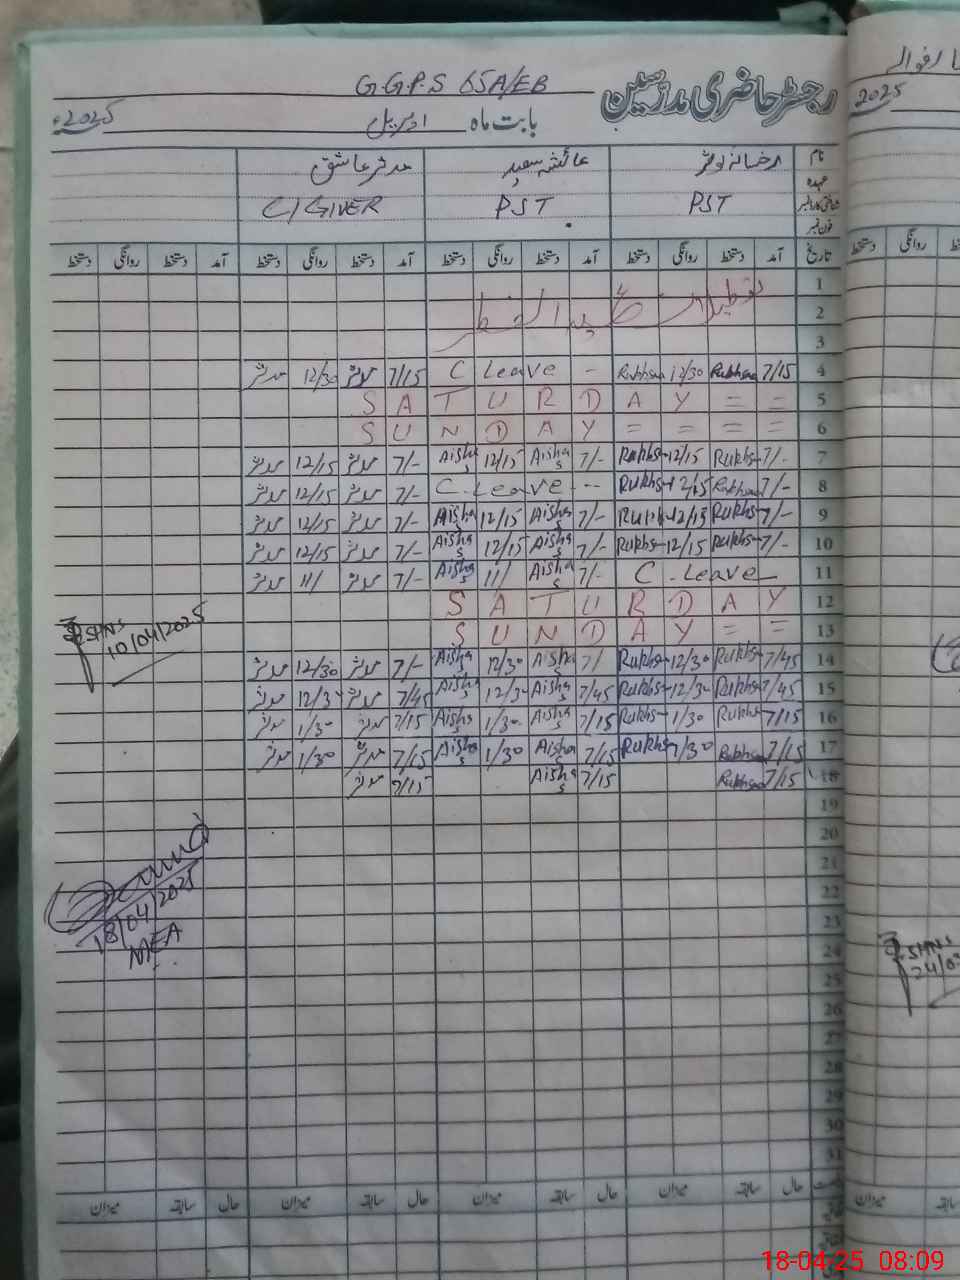 G.G.P.S 65A/EB
رجسٹر حاضری مدرسین
بابت ماہ اپریل 2025ء
نام رخسانہ کوثر عائشہ سعید مدثر عاشق
عہدہ
شناختی کارڈ نمبر PST PST C/GIVER
فون نمبر
تاریخ آمد دستخط روانگی دستخط آمد دستخط روانگی دستخط آمد دستخط روانگی دستخط
1 تعطیلات عید الفطر
2
3
4 7/15 Rukhsana 12/30 Rukhsana - C Leave 7/15 مدثر 12/30 مدثر
5 S A T U R D A Y = =
6 S U N D A Y = = = =
7 7/- Rukhs 12/15 Rukhs 7/- Aisha S 12/15 Aisha S 7/- مدثر 12/15 مدثر
8 7/- Rukhsana 12/15 Rukhs -- C. Leave 7/- مدثر 12/15 مدثر
9 7/- Rukhs 12/15 Rukh 7/- Aisha S 12/15 Aisha S 7/- مدثر 12/15 مدثر
10 7/- Rukhs 12/15 Rukhs 7/- Aisha S 12/15 Aisha S 7/- مدثر 12/15 مدثر
11 C. Leave 7/- Aisha S 11/ Aisha S 7/- مدثر 11/ مدثر
12 S A T U R D A Y
13 S U N D A Y = =
SHNS
10/04/2025
14 7/45 Rukhs 12/30 Rukhs 7/ Aisha S 12/30 Aisha S 7/- مدثر 12/30 مدثر
15 7/45 Rukhs 12/30 Rukhs 7/45 Aisha S 12/30 Aisha S 7/45 مدثر 12/30 مدثر
16 7/15 Rukhs 1/30 Rukhs 7/15 Aisha S 1/30 Aisha S 7/15 مدثر 1/30 مدثر
17 7/15 Rukhsana 1/30 Rukhs 7/15 Aisha S 1/30 Aisha S 7/15 مدثر 1/30 مدثر
18 7/15 Rukhsana 7/15 Aisha S 7/15 مدثر
19
20
21
22
23
24
25
26
27
28
29
30
31
18/04/2025
MEA
حال سابقہ میزان حال سابقہ میزان حال سابقہ میزان
2025
روانگی دستخط
SHNS
24/03
18-04-25 08:09